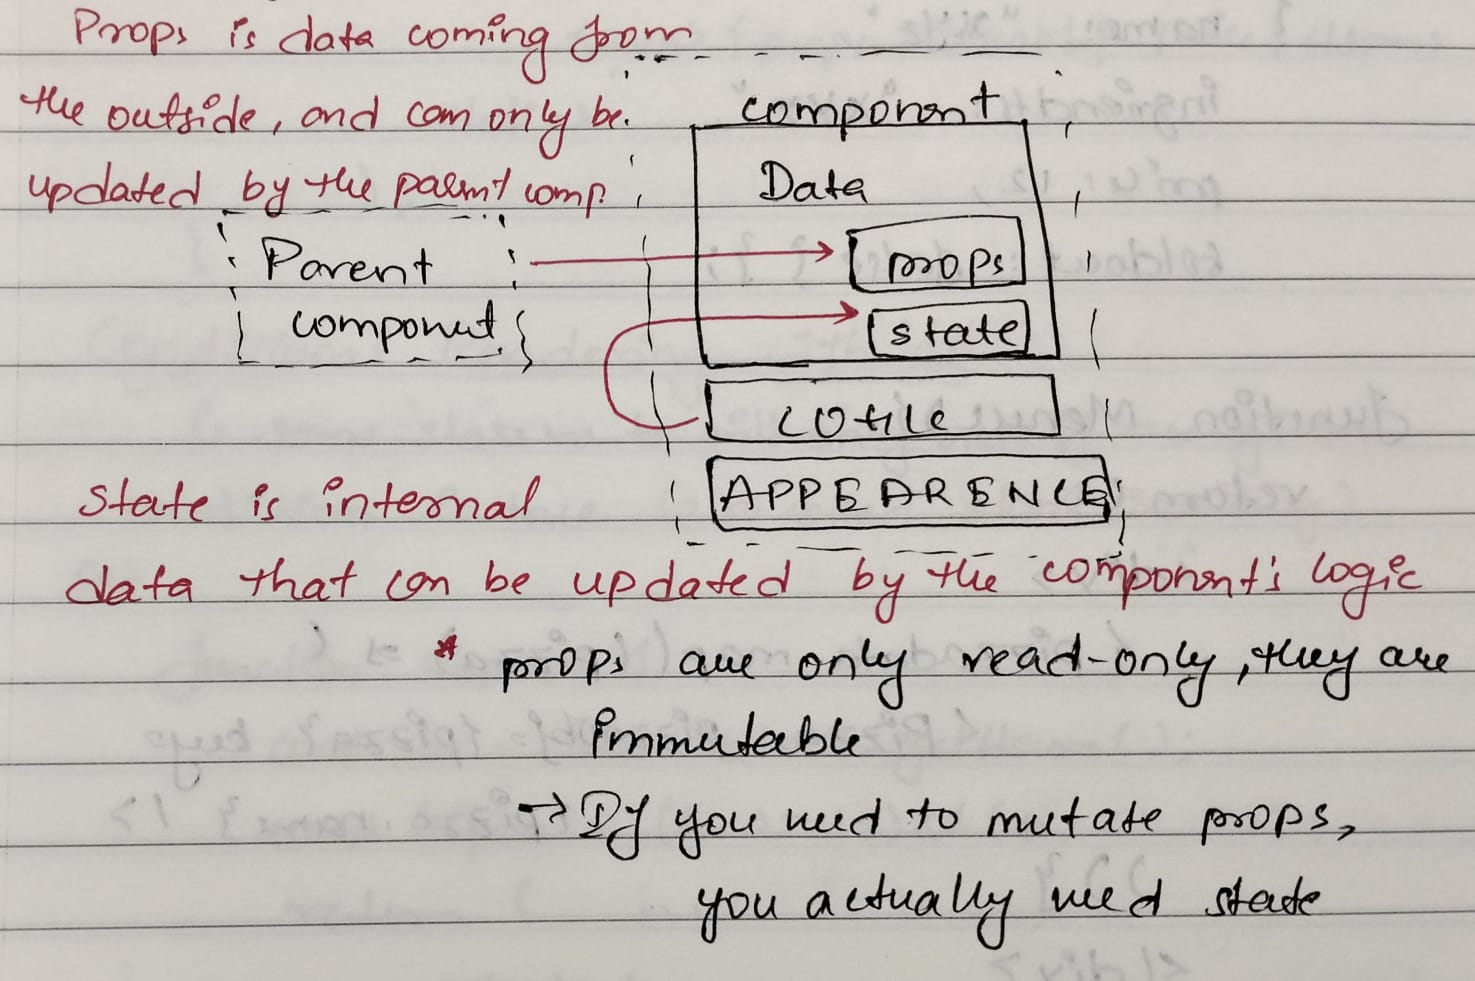 Props is data coming from
the outside, and can only be
updated by the parent comp.
component
Data
Parent
component
props
state
APPEARENCE
state is internal
data that can be updated by the component's logic
* props are only read-only, they are
immutable
→ If you need to mutate props,
you actually need state